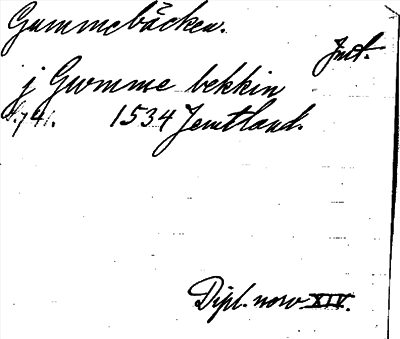 Gummebäcken.
Jmt.
j Gwmme bekkin
S. 741. 1534 Jemtland.
Dipl. norv. XIV.